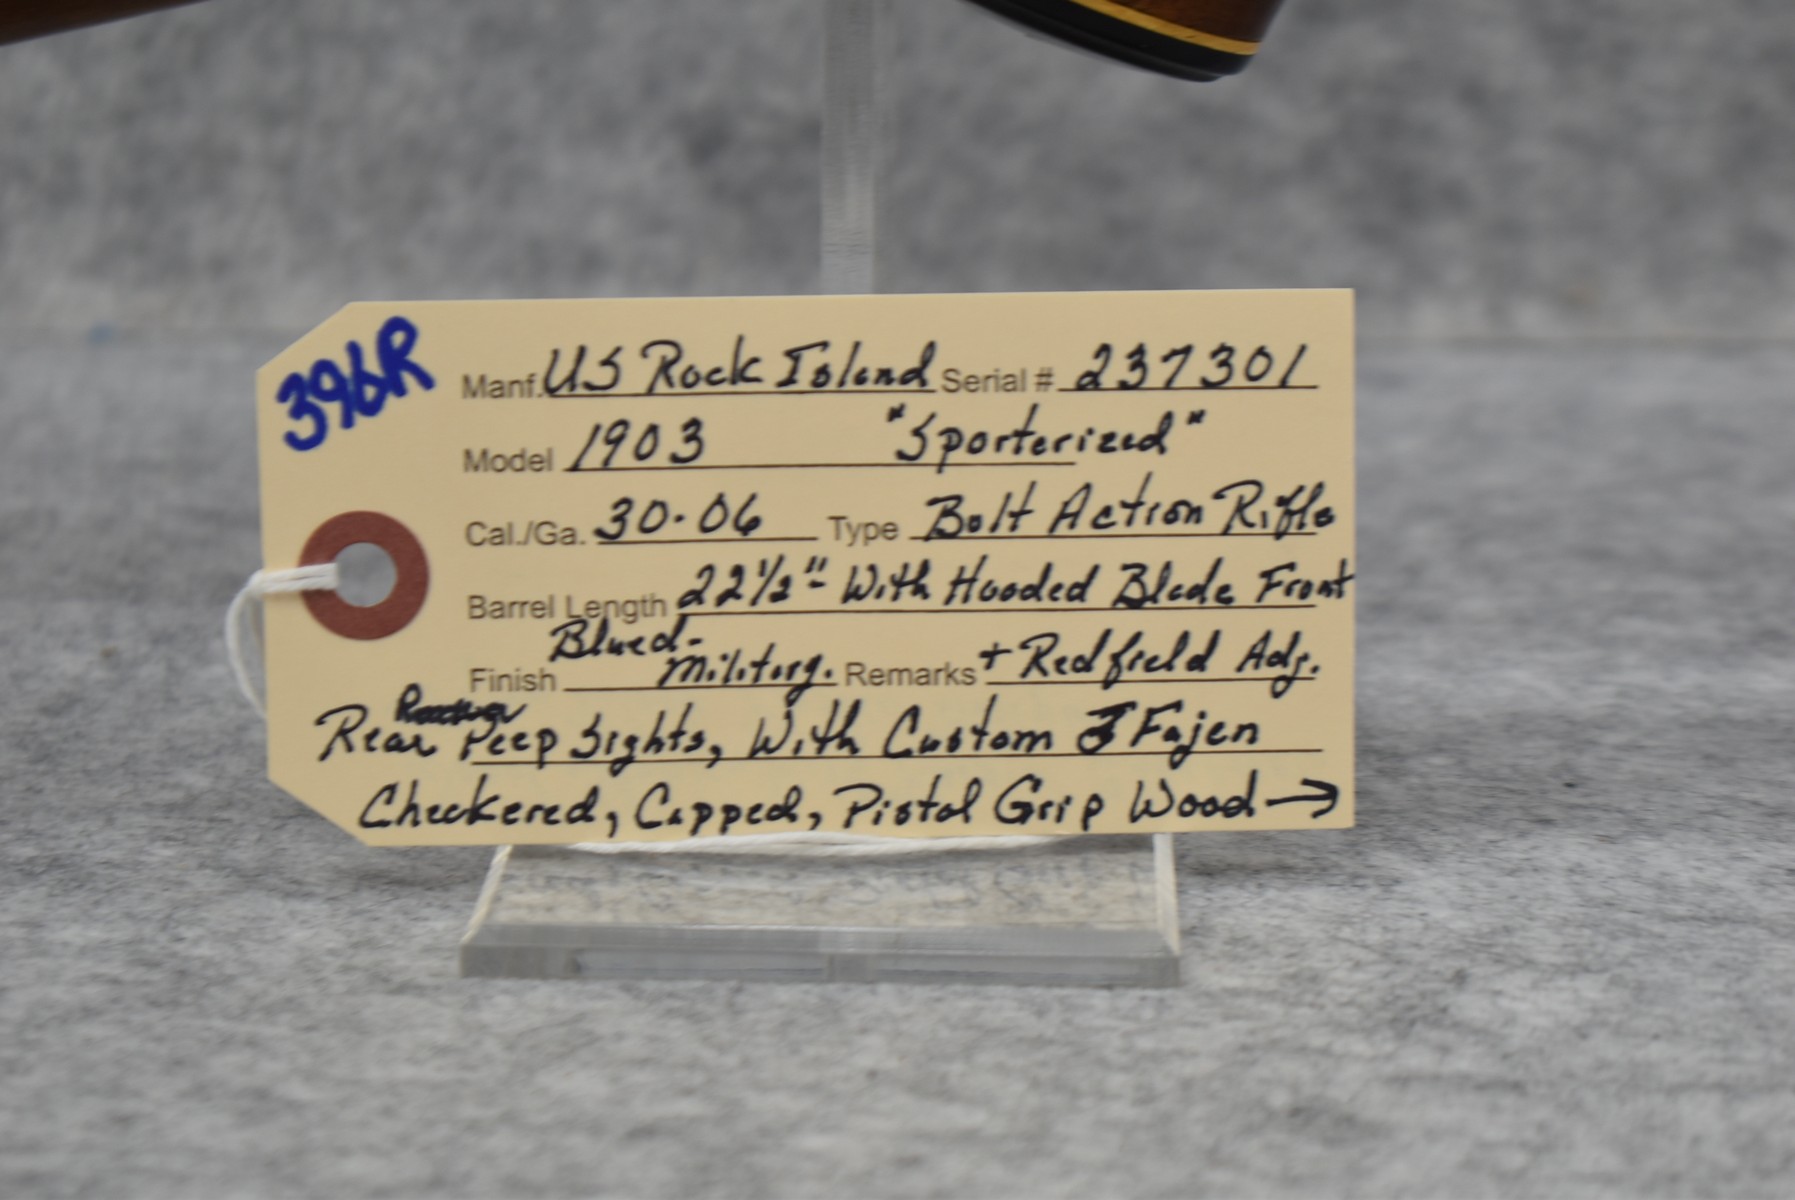 396R
Manf. US Rock Island Serial # 237301
Model 1903 "Sporterized"
Cal./Ga. 30-06 Type Bolt Action Rifle
Barrel Length 22 1/2" With Hooded Blade Front
Finish Blued- Military. Remarks + Redfield Adj.
Rear Peep Sights, With Custom Fajen
Checkered, Capped, Pistol Grip Wood →